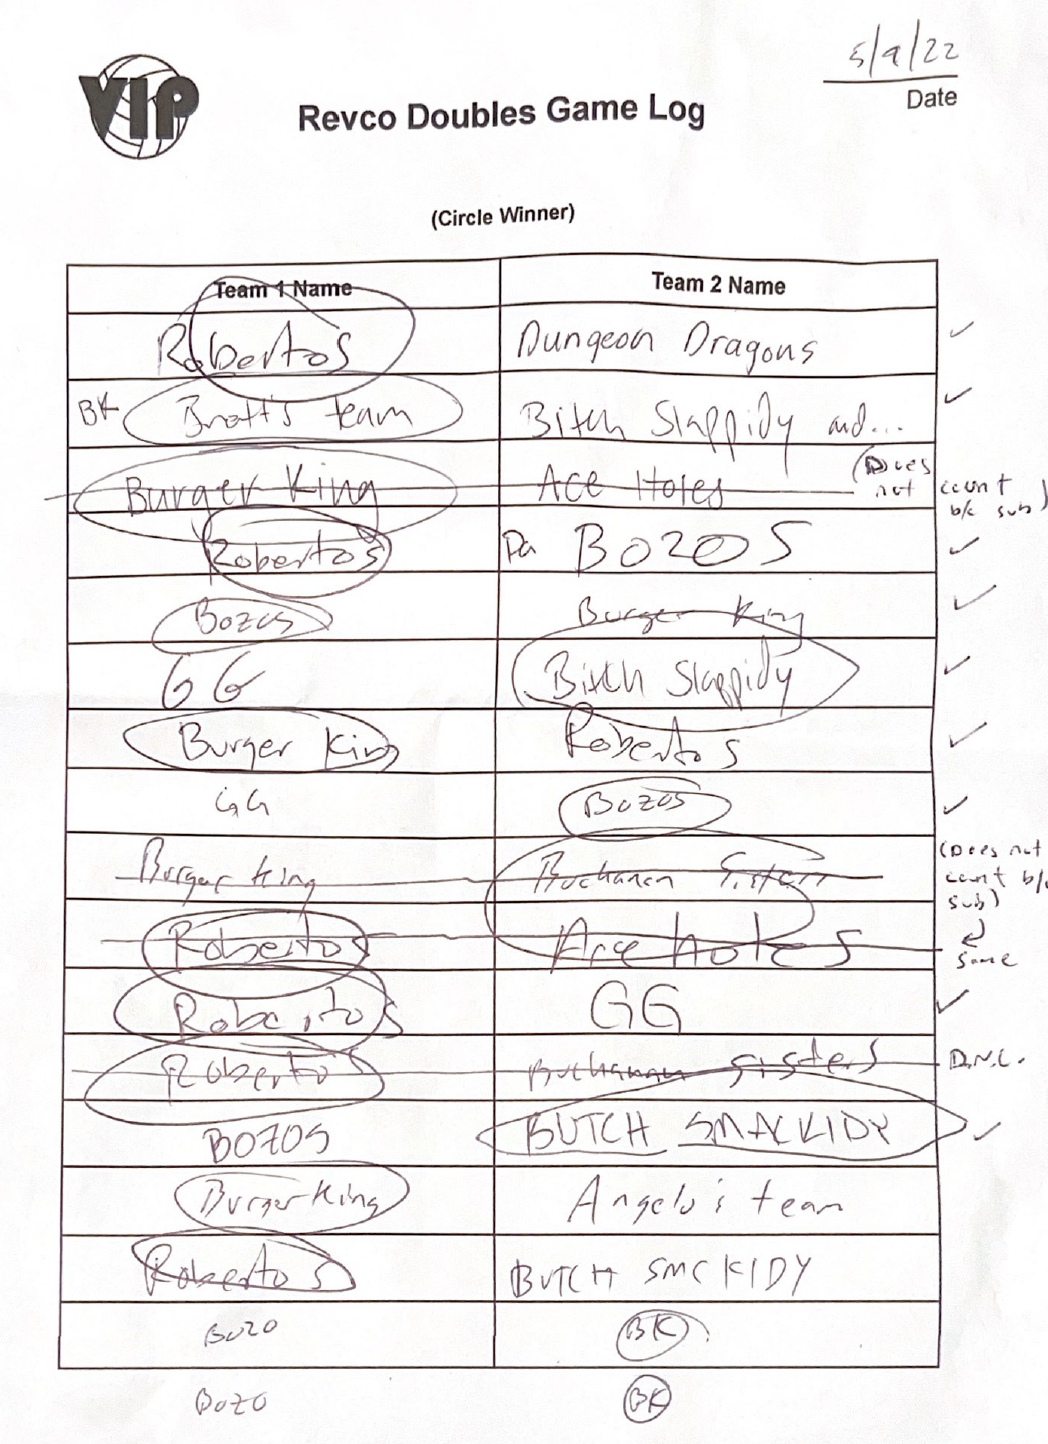 5/9/22
VIP
Revco Doubles Game Log
Date
(Circle Winner)
Team 1 Name Team 2 Name
Robertos Dungeon Dragons
BK Bratt's team Bitch Slappidy and...
Burger King Ace Holes (Does not count b/c sub)
Robertos Da BOZOS
Bozos Burger King
GG Bitch Slappidy
Burger King Robertos
GG Bozos
Burger King Buchanan Sisters (Does not count b/c sub)
Robertos Ace holes same
Robertos GG
Robertos Buchanan Sisters D.N.C.
BOZOS BUTCH SMACKIDY
Burger King Angelo's team
Robertos BUTCH SMCKIDY
Bozo BK
Bozo BK